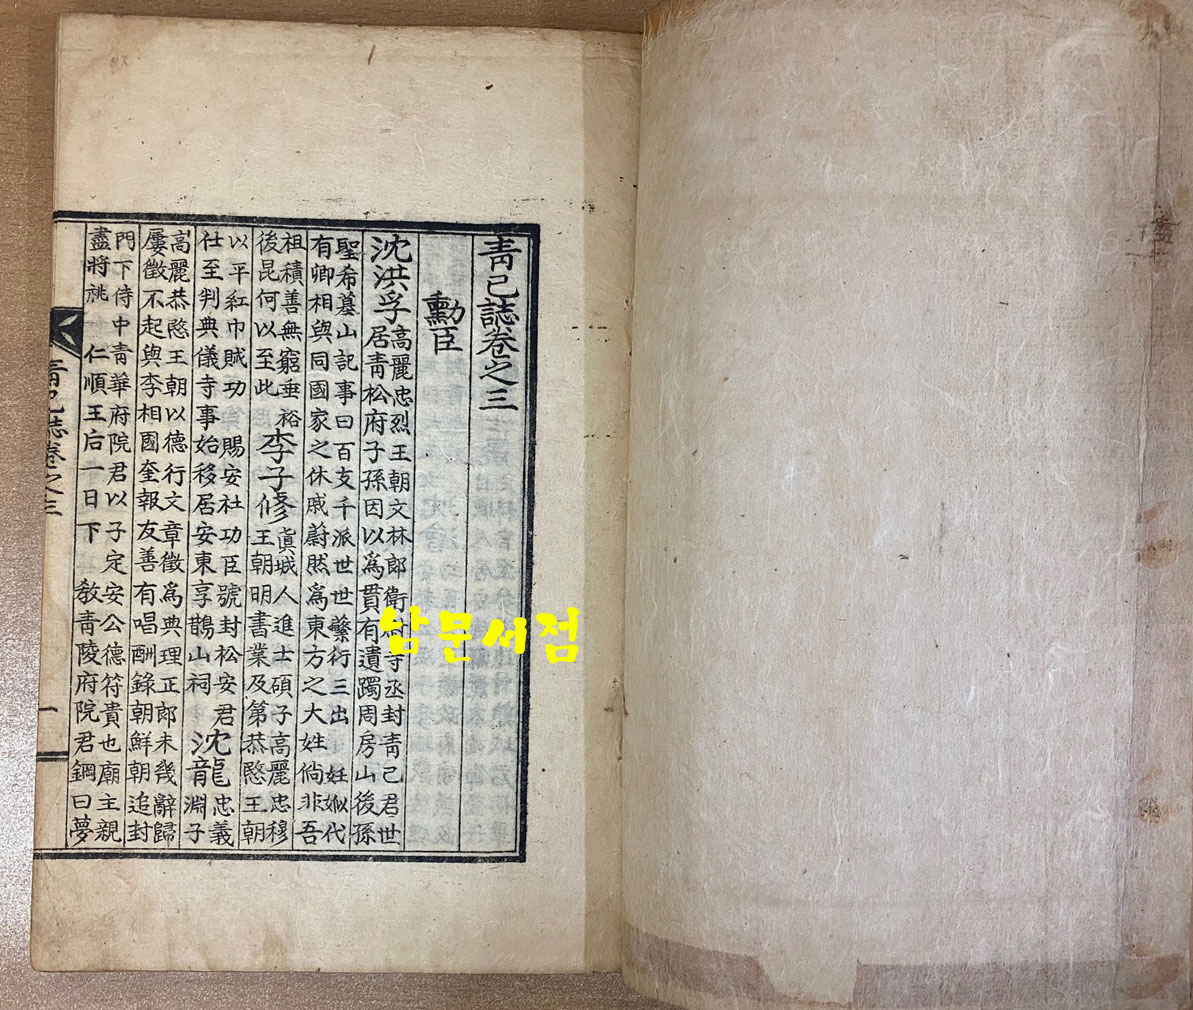 青己誌卷之三
勳臣
沈洪孚
高麗忠烈王朝文林郎衛寺丞封青己君世
居青松府子孫因以爲貫有遺躅周房山後孫
聖希墓山記事曰百支千派世世繁衍三出 妊姒代
有卿相與同國家之休戚蔚然爲東方之大姓倘非吾
祖積善無窮垂裕
後昆何以至此
李子修
眞城人進士碩子高麗忠穆
王朝明書業及第恭愍王朝
以平紅巾賊功 賜安社功臣號封松安君
仕至判典儀寺事始移居安東享鵲山祠
沈龍
忠義
淵子
高麗恭愍王朝以德行文章徵爲典理正郎未幾辭歸
屢徵不起與李相國奎報友善有唱酬錄朝鮮朝追封
門下侍中青華府院君以子定安公德符貴也廟主親
盡將祧 仁順王后一日下 敎青陵府院君鋼曰夢
青己誌卷之三
一
남문서점